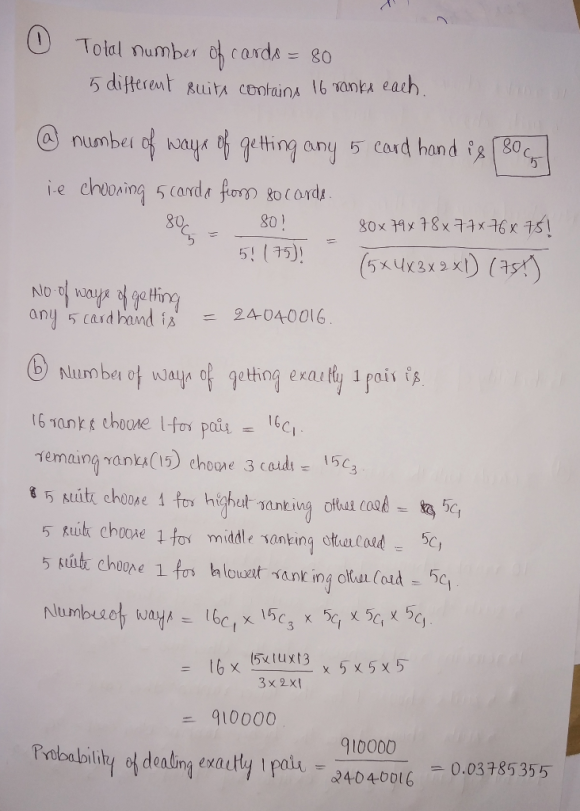 ① Total number of cards = 80
5 different suits contains 16 ranks each.
ⓐ number of ways of getting any 5 card hand is 80C5
i.e choosing 5 cards from 80 cards.
80C5 = 80! / 5! (75)! = 80 x 79 x 78 x 77 x 76 x 75! / (5x4x3x2x1) (75!)
No. of ways of getting
any 5 card hand is = 24040016.
ⓑ Number of ways of getting exactly 1 pair is.
16 ranks choose 1 for pair = 16C1.
remaing ranks (15) choose 3 cards = 15C3.
5 suits choose 1 for highest ranking other card = 5C1
5 suits choose 1 for middle ranking other card = 5C1
5 suits choose 1 for lowest ranking other card = 5C1.
Number of ways = 16C1 x 15C3 x 5C1 x 5C1 x 5C1.
= 16 x 15x14x13 / 3x2x1 x 5 x 5 x 5
= 910000
Probability of dealing exactly 1 pair = 910000 / 24040016 = 0.03785355